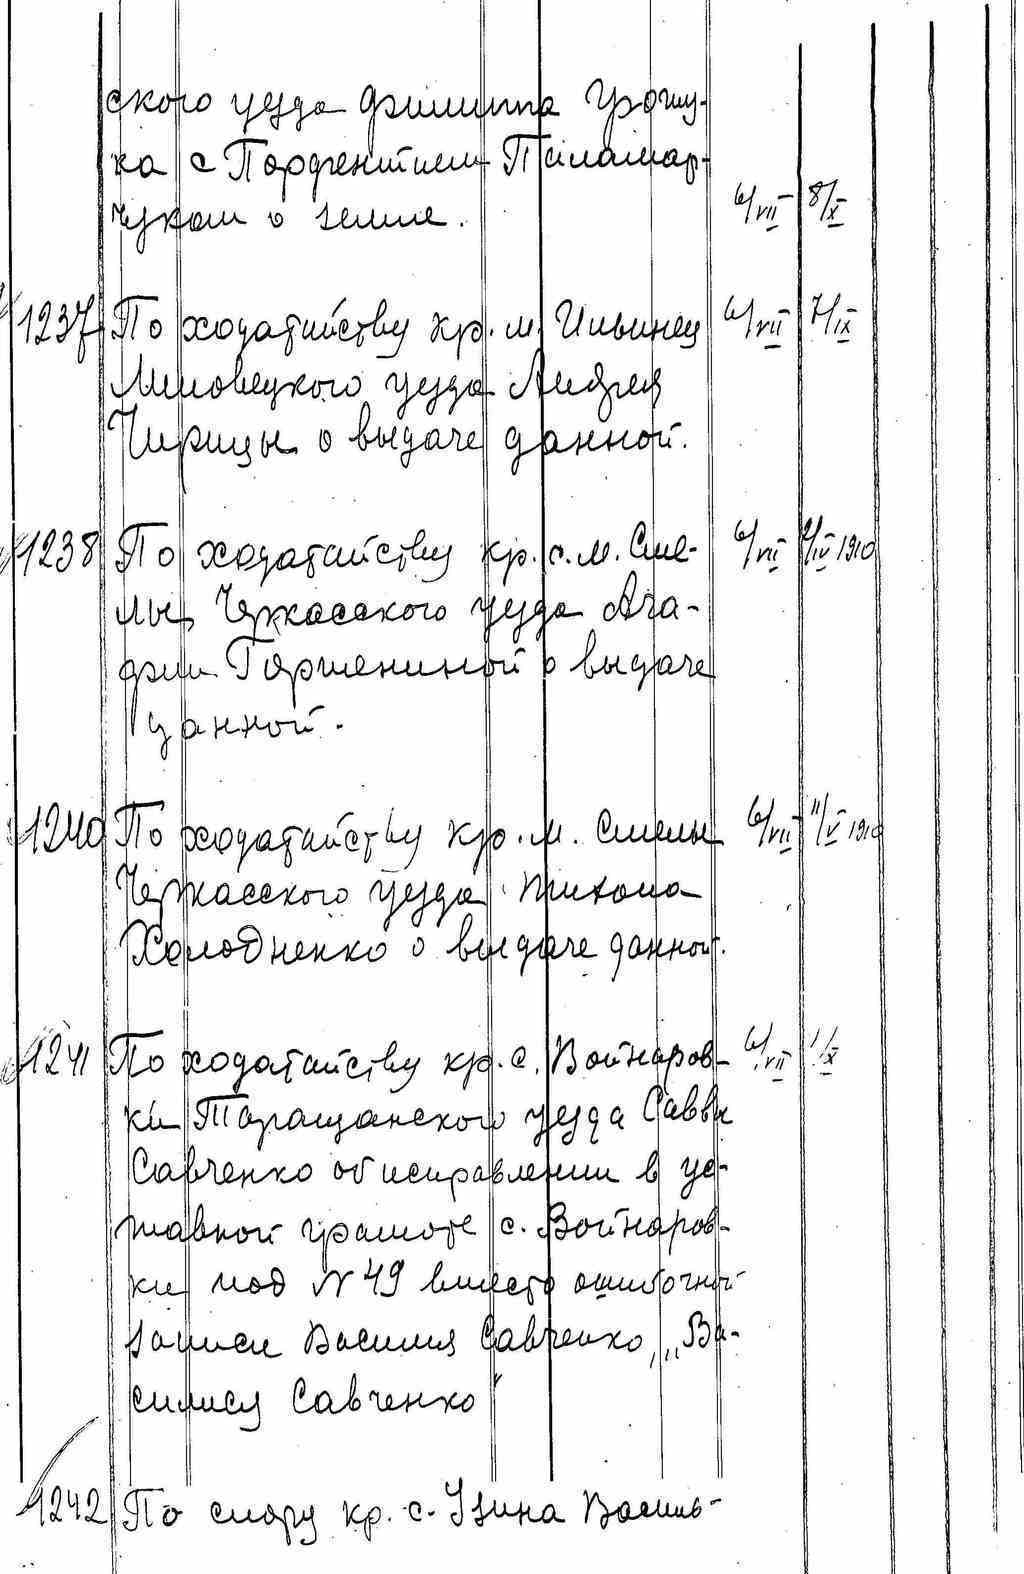 ского уезда Филиппа Грошу-
ка с Парфентием Паламар-
чуком о земле. 6/VII 8/X
1237 По ходатайству кр. м. Ильинец 6/VII 7/IX
Липовецкого уезда Андрея
Чирицы о выдаче данной.
1238 По ходатайству кр. с. м. Сме- 6/VII 9/IV 1910
лы, Черкасского уезда Ага-
фии Гаршениной о выдаче
данной.
1240 По ходатайству кр. м. Смелы 6/VII 11/V 1910
Черкасского уезда Тихона
Холодненко о выдаче данной.
1241 По ходатайству кр. с. Войнаров- 6/VII 1/X
ки Таращанского уезда Саввы
Савченко об исправлении в ус-
тавной грамоте с. Войнаров-
ки под N 49 вместо ошибочной
записи Василия Савченко, „Ва-
силиса Савченко"
1242 По спору кр. с. Узина Василь-